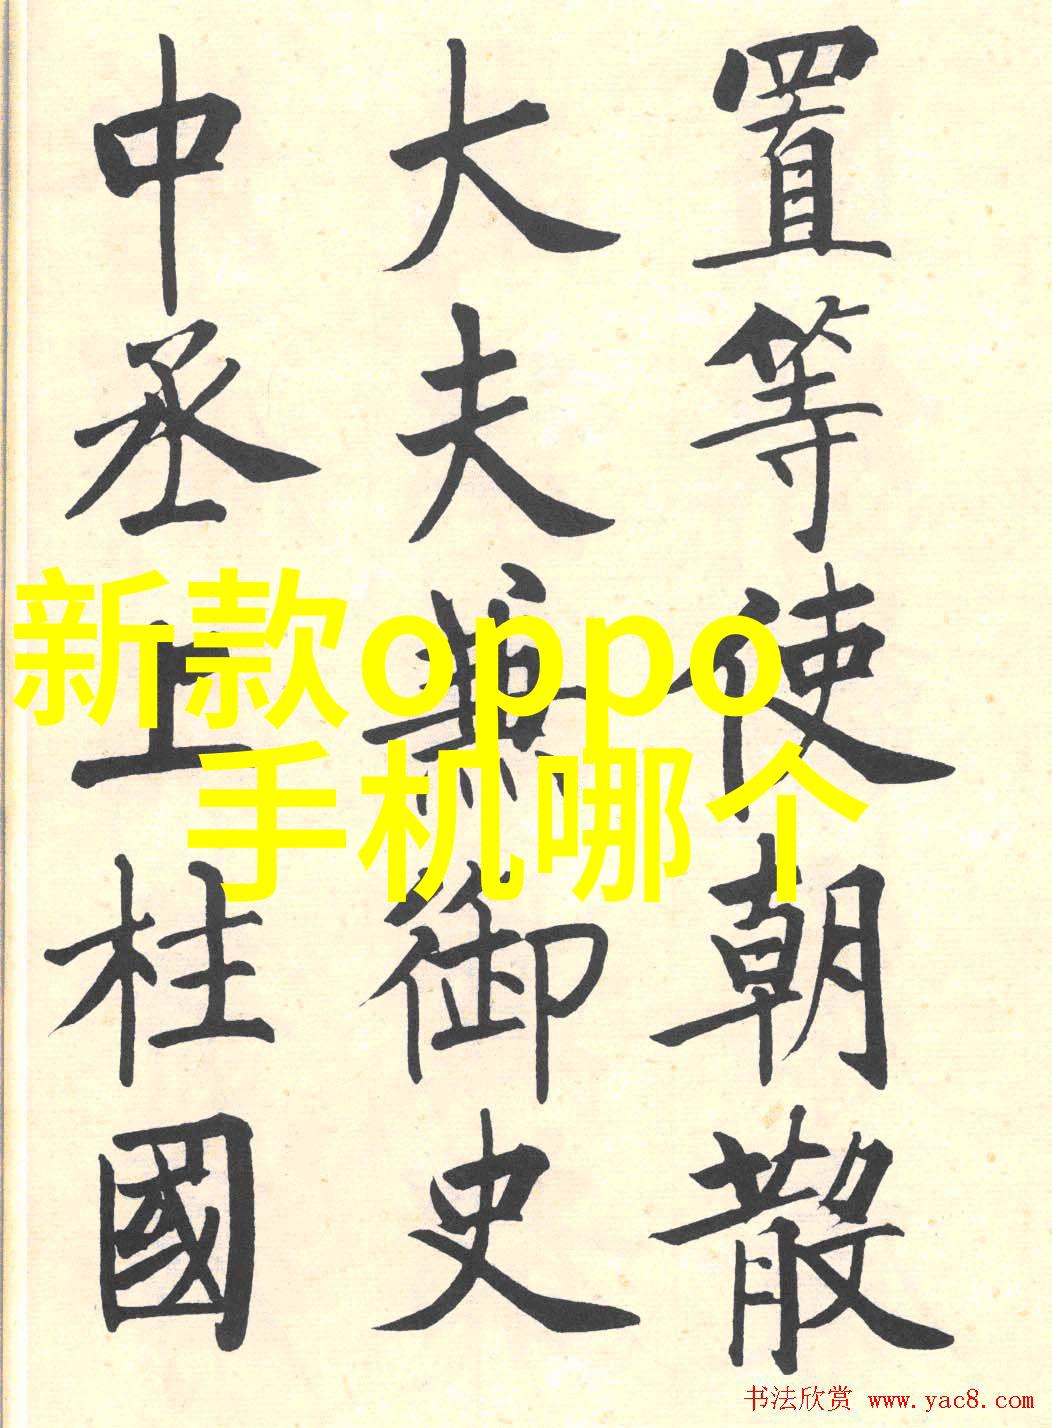 置等使朝散
大夫兼御史
中丞上柱國
新款oppo
手机哪个
书法欣赏 www.yac8.com